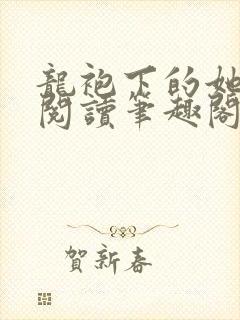 龍袍下的她
閱讀筆趣閣
賀新春